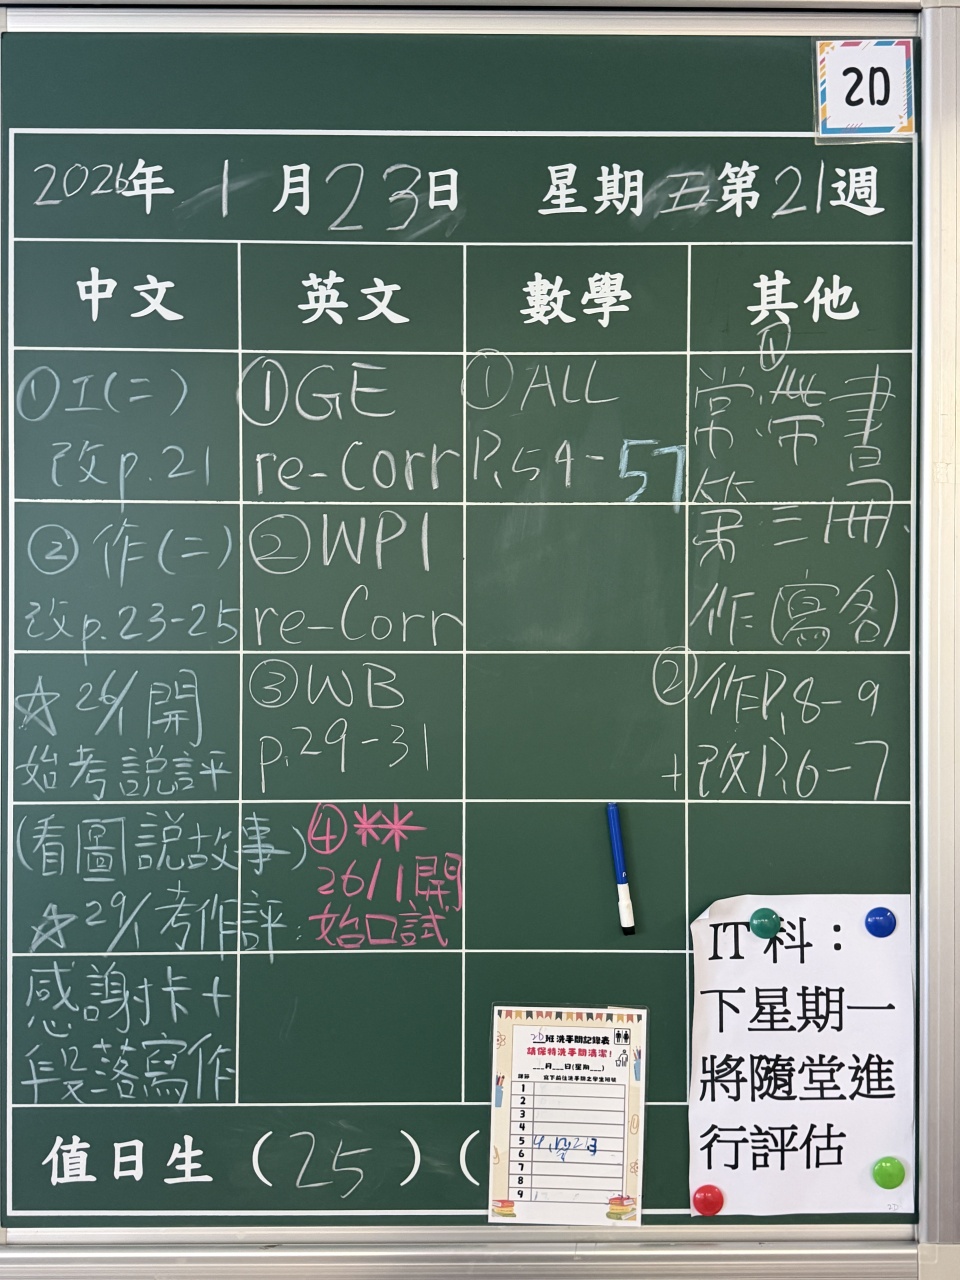 2D
2026年 1月23日 星期五 第21週
中文
①工(二)
改p.21
②作(二)
改p.23-25
☆26/1開
始考說評
(看圖說故事)
☆29/1考作評:
感謝卡+
段落寫作
英文
①GE
re-Corr
②WP1
re-Corr
③WB
p.29-31
④**
26/1開
始口試
數學
①ALL
P.54-57
其他
①
常帶書
第三冊
作(寫名)
②作P.8-9
+改P.6-7
IT科：
下星期一
將隨堂進
行評估
值日生（25）（
2D班洗手間記錄表
請保持洗手間清潔！
___月___日(星期___)
1
2
3
4
5
6
7
8
9